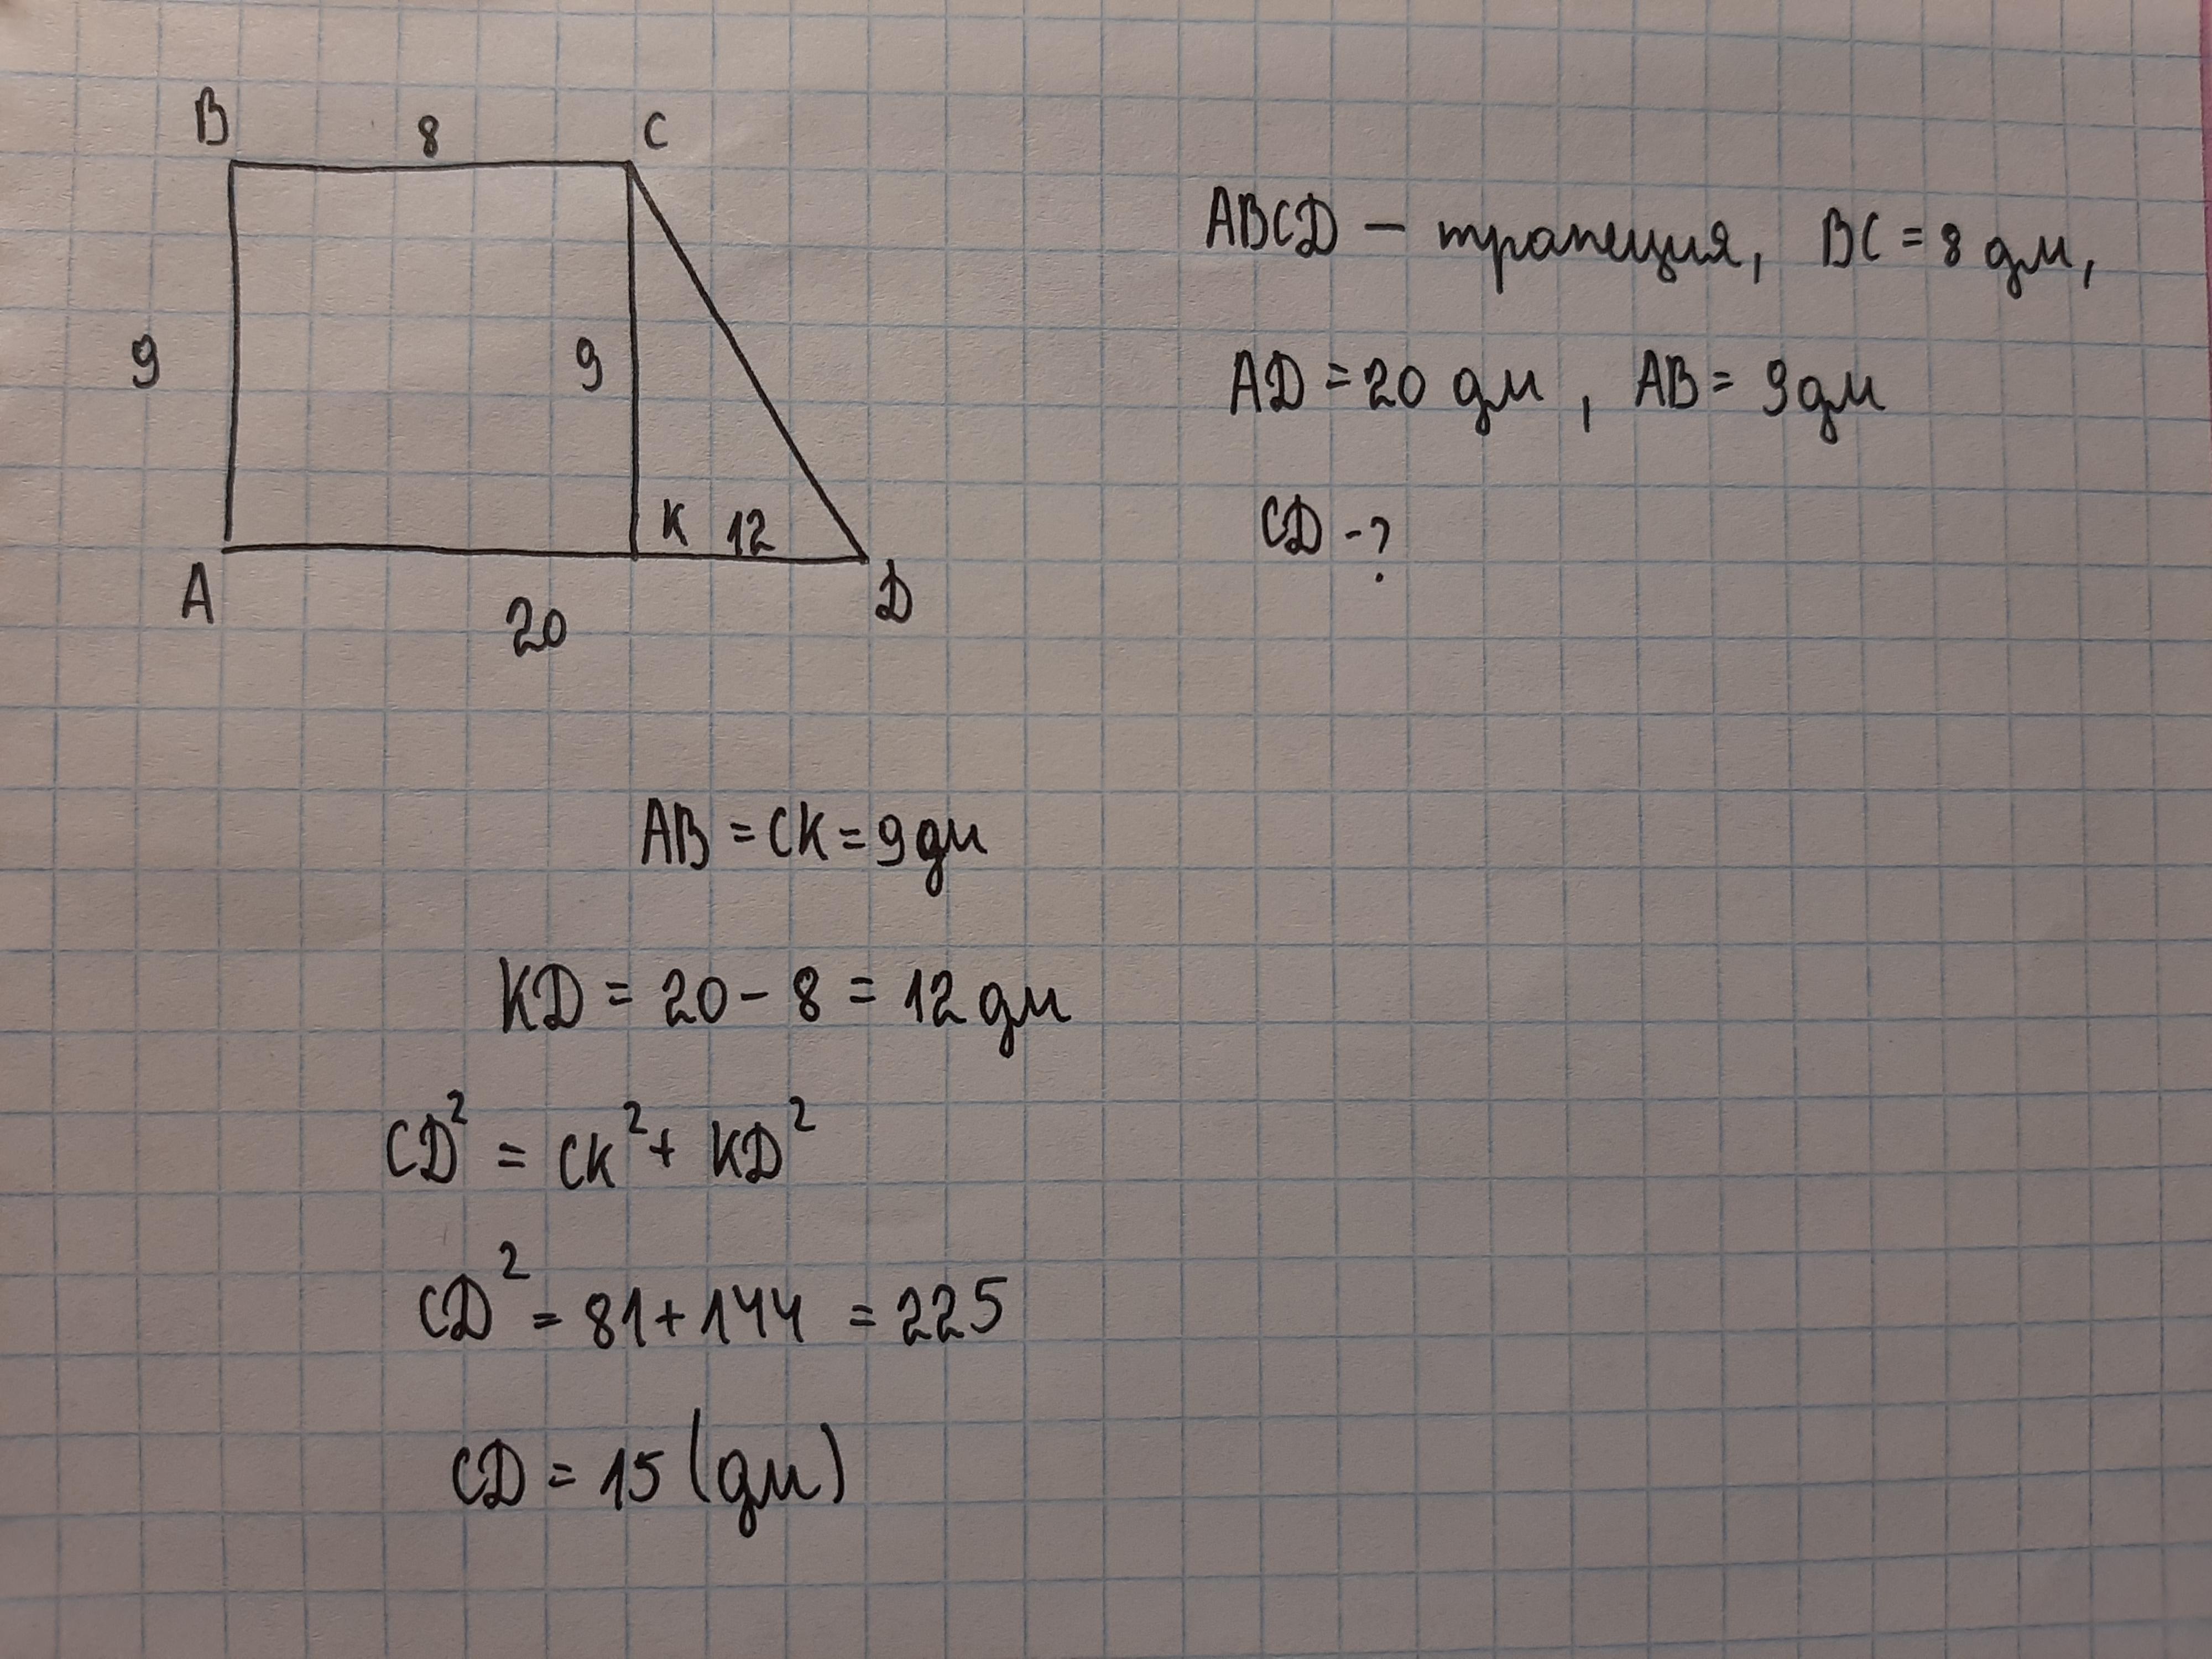 B 8 C
9 9
K 12
A D
20
ABCD – трапеция, BC = 8 дм,
AD = 20 дм, AB = 9 дм
CD - ?
AB = CK = 9 дм
KD = 20 - 8 = 12 дм
CD² = CK² + KD²
CD² = 81 + 144 = 225
CD = 15 (дм)